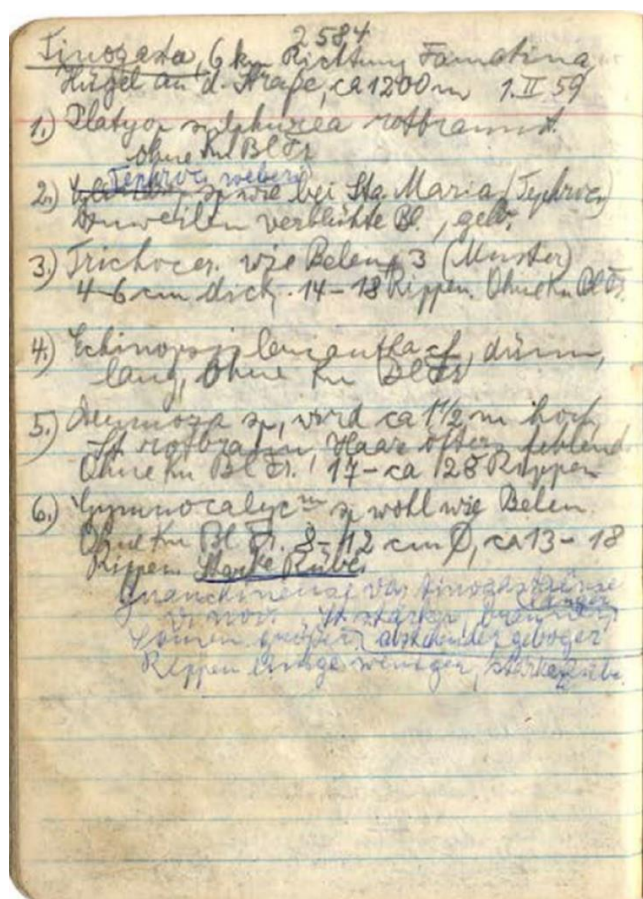 2584
Tinogasta, 6 km Richtung Famatina
Hügel an d. Straße, ca 1200 m 1.II 59
1.) Platyop. sp. rotbraun St.
ohne Kn Bl Fr
Tephroc. weberi
2.) sp wie bei Sta. Maria (Tephroc)
bisweilen verblühte Bl., gelb.
3.) Trichocer. wie Belen 3 (Muster)
4-6 cm dick, 14-18 Rippen. Ohne Kn Bl Fr.
4.) Echinopsis leucantha cf, dünn,
lang, Ohne Kn Bl Fr
5.) Denmoza sp, wird ca 1½ m hoch
St rotbraun, Haare öfters fehlend
Ohne Kn Bl Fr. 17-ca 28 Rippen
6.) Gymnocalycm sp wohl wie Belen.
Ohne Kn Bl Fr. 8-12 cm Ø, ca 13-18
Rippen. Starke Rübe.
var. tinogastaense
v. nov. St stärker,
Samen größer, abstehender gebogen
Rippen einige weniger,